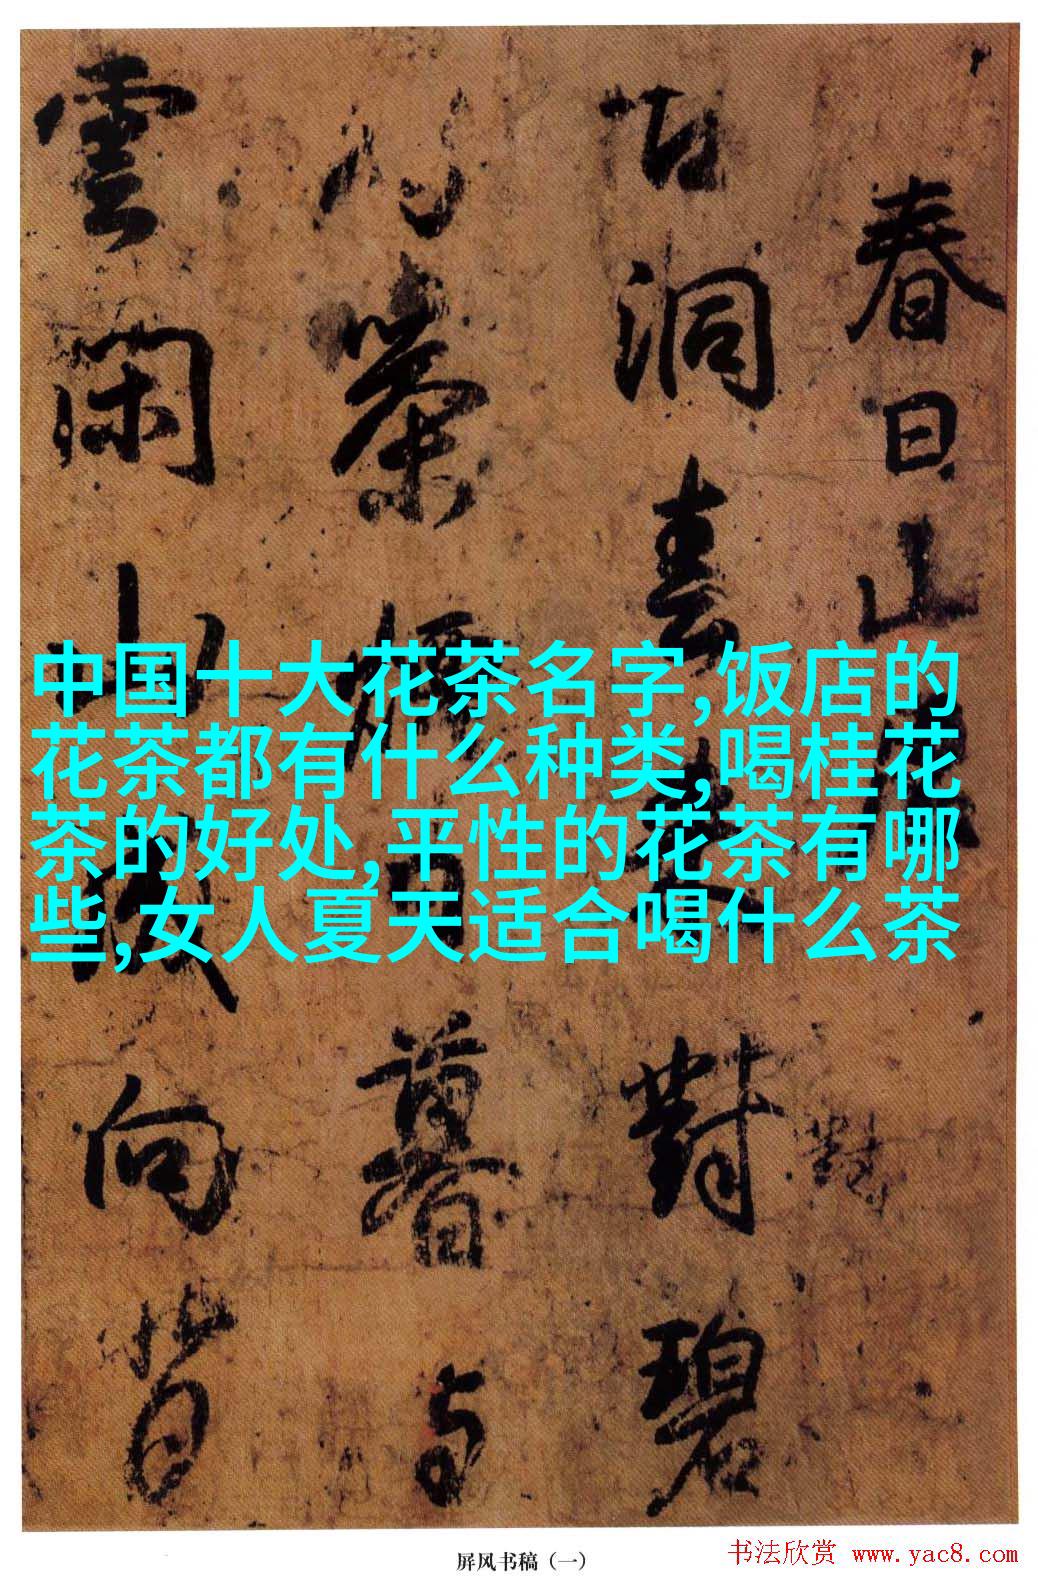 春日山
古洞春来對碧
對
茶烟日暮与
雲閑山成向背
中国十大花茶名字,饭店的
花茶都有什么种类,喝桂花
茶的好处,平性的花茶有哪
些,女人夏天适合喝什么茶
屏风书稿（一）
书法欣赏 www.yac8.com